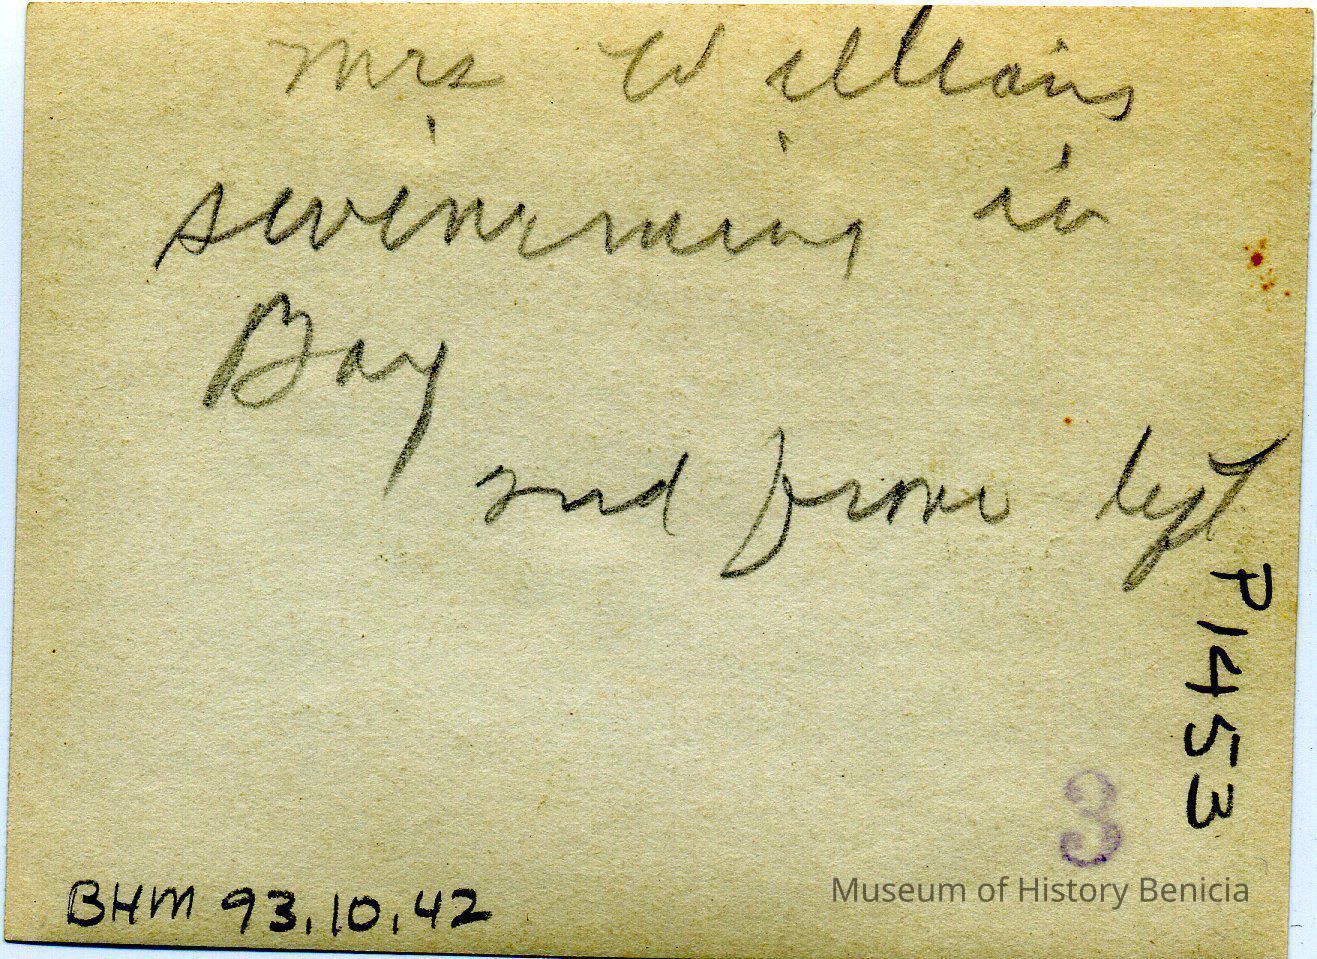 Mrs Williams
swimming in
Bay
2nd from left
P1453
3
Museum of History Benicia
BHM 93.10.42